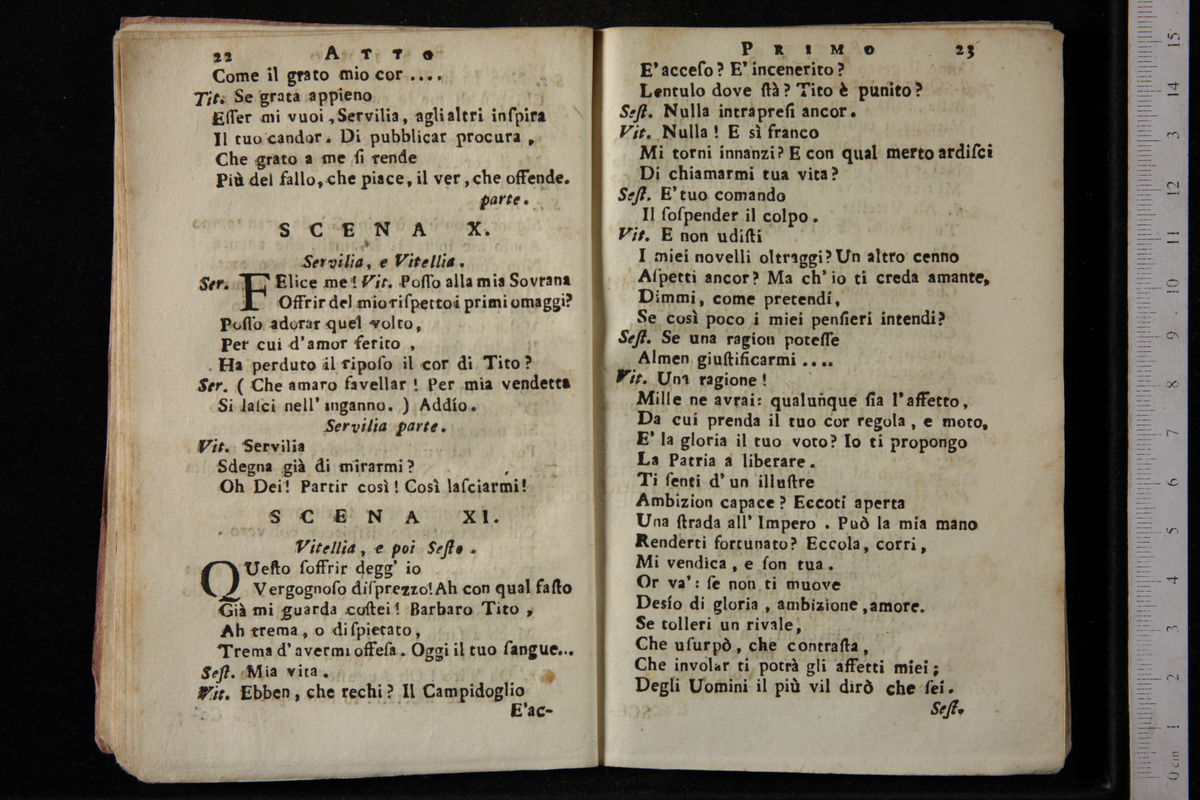 22 ATTO
Come il grato mio cor ....
Tit. Se grata appieno
Eſſer mi vuoi, Servilia, agli altri inſpira
Il tuo candor. Di pubblicar procura,
Che grato a me ſi rende
Più del fallo, che piace, il ver, che offende.
parte.
SCENA X.
Servilia, e Vitellia.
Ser. FElice me! Vit. Poſſo alla mia Sovrana
Offrir del mio riſpetto i primi omaggi?
Poſſo adorar quel volto,
Per cui d'amor ferito,
Ha perduto il ripoſo il cor di Tito?
Ser. ( Che amaro favellar! Per mia vendetta
Si laſci nell' inganno. ) Addío.
Servilia parte.
Vit. Servilia
Sdegna già di mirarmi?
Oh Dei! Partir così! Così laſciarmi!
SCENA XI.
Vitellia, e poi Seſto.
QUeſto ſoffrir degg' io
Vergognoſo diſprezzo! Ah con qual faſto
Già mi guarda coſtei! Barbaro Tito,
Ah trema, o diſpietato,
Trema d' avermi offeſa. Oggi il tuo ſangue...
Seſt. Mia vita.
Vit. Ebben, che rechi? Il Campidoglio
E'ac-
PRIMO 23
E' acceſo? E' incenerito?
Lentulo dove ſtà? Tito è punito?
Seſt. Nulla intrapreſi ancor.
Vit. Nulla! E sì franco
Mi torni innanzi? E con qual merto ardiſci
Di chiamarmi tua vita?
Seſt. E' tuo comando
Il ſoſpender il colpo.
Vit. E non udiſti
I miei novelli oltraggi? Un altro cenno
Aſpetti ancor? Ma ch' io ti creda amante,
Dimmi, come pretendi,
Se così poco i miei penſieri intendi?
Seſt. Se una ragion poteſſe
Almen giuſtificarmi ....
Vit. Una ragione!
Mille ne avrai: qualunque ſia l' affetto,
Da cui prenda il tuo cor regola, e moto.
E' la gloria il tuo voto? Io ti propongo
La Patria a liberare.
Ti ſenti d' un illuſtre
Ambizion capace? Eccoti aperta
Una ſtrada all' Impero. Può la mia mano
Renderti fortunato? Eccola, corri,
Mi vendica, e ſon tua.
Or va': ſe non ti muove
Desío di gloria, ambizione, amore.
Se tolleri un rivale,
Che uſurpò, che contraſta,
Che involar ti potrà gli affetti miei;
Degli Uomini il più vil dirò che ſei.
Seſt.